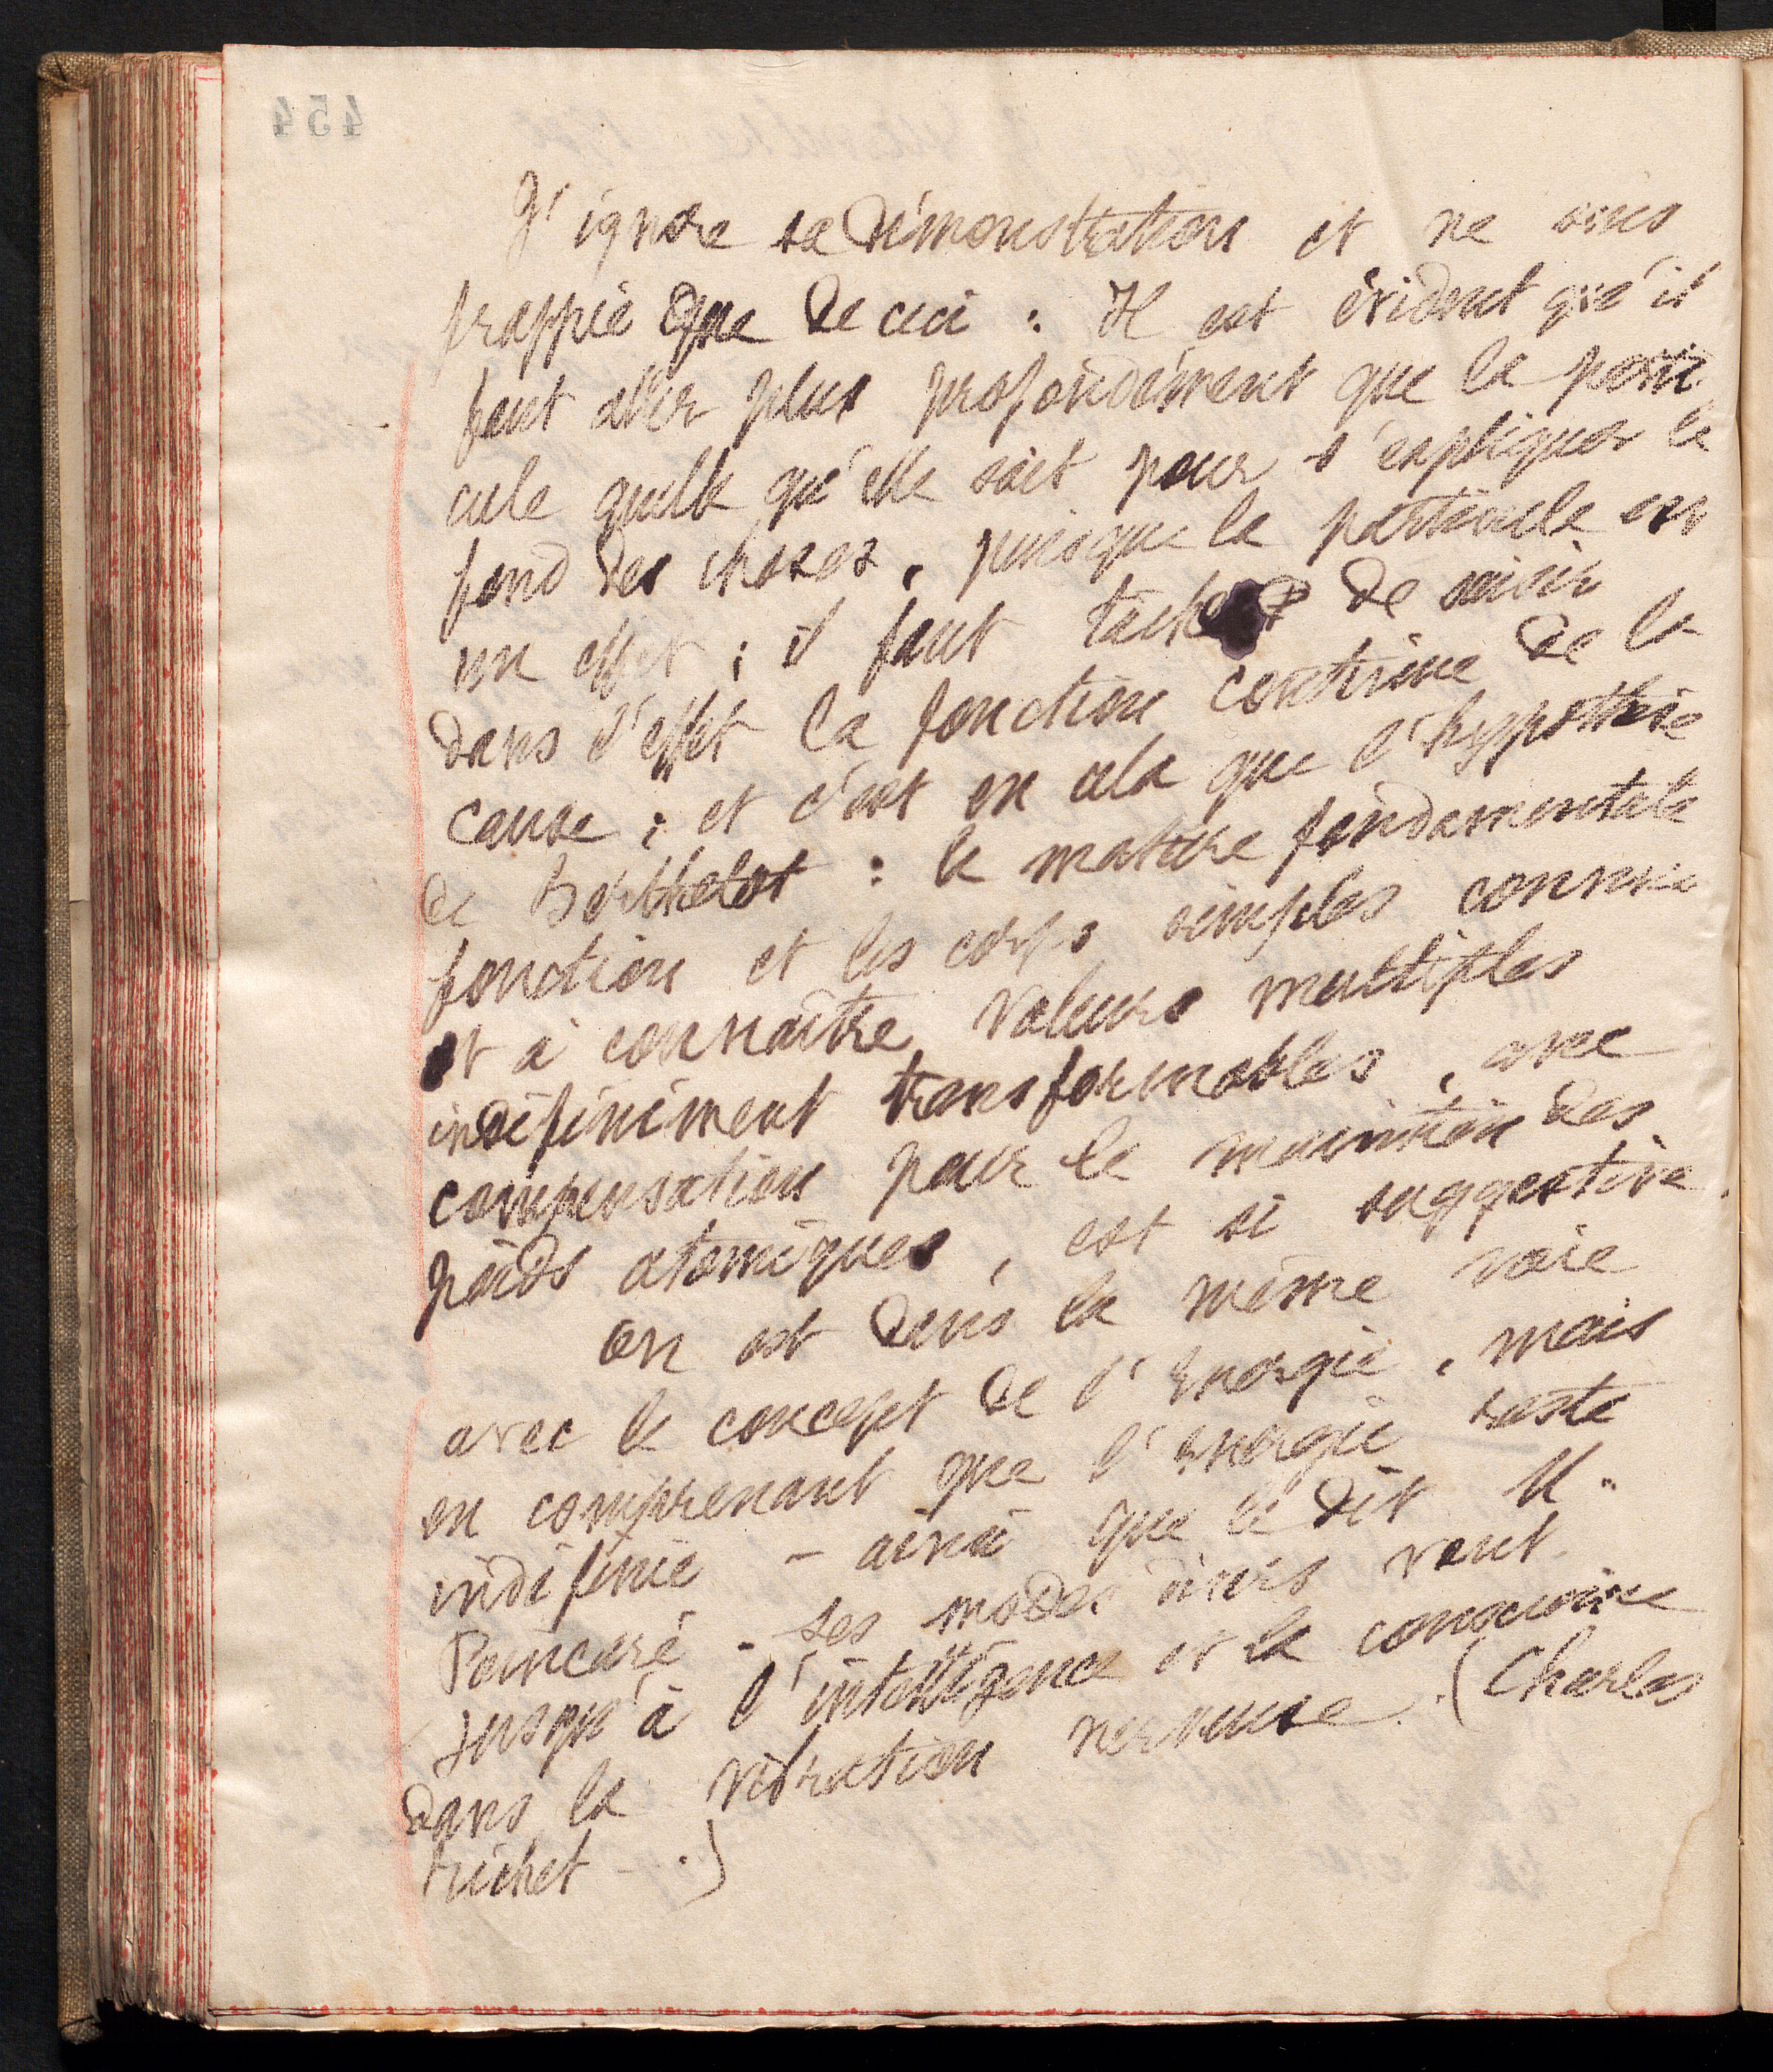 J'ignore sa démonstration et ne suis
frappé que de ceci : Il est évident qu'il
faut aller plus profondément que la parti-
cule quelle qu'elle soit pour s'expliquer le
fond des choses, puisque la particule est
un effet ; il faut tâcher de saisir
dans l'effet la fonction continue de la
cause ; et c'est en cela que l'hypothèse
de Berthelot : la matière fondamentale
fonction et les corps simples connus
et à connaître valeurs multiples
indéfiniment transformables, avec
compensation pour le maintien des
poids atomiques, est si suggestive.
On est dans la même voie
avec le concept de l'Energie, mais
en comprenant que l'energie reste
indéfinie - ainsi que le dit M.
Poincaré - ses modes divers vont
jusqu'à l'intelligence et la conscience
dans la vibration nerveuse. (Charles
Richet - .)
454